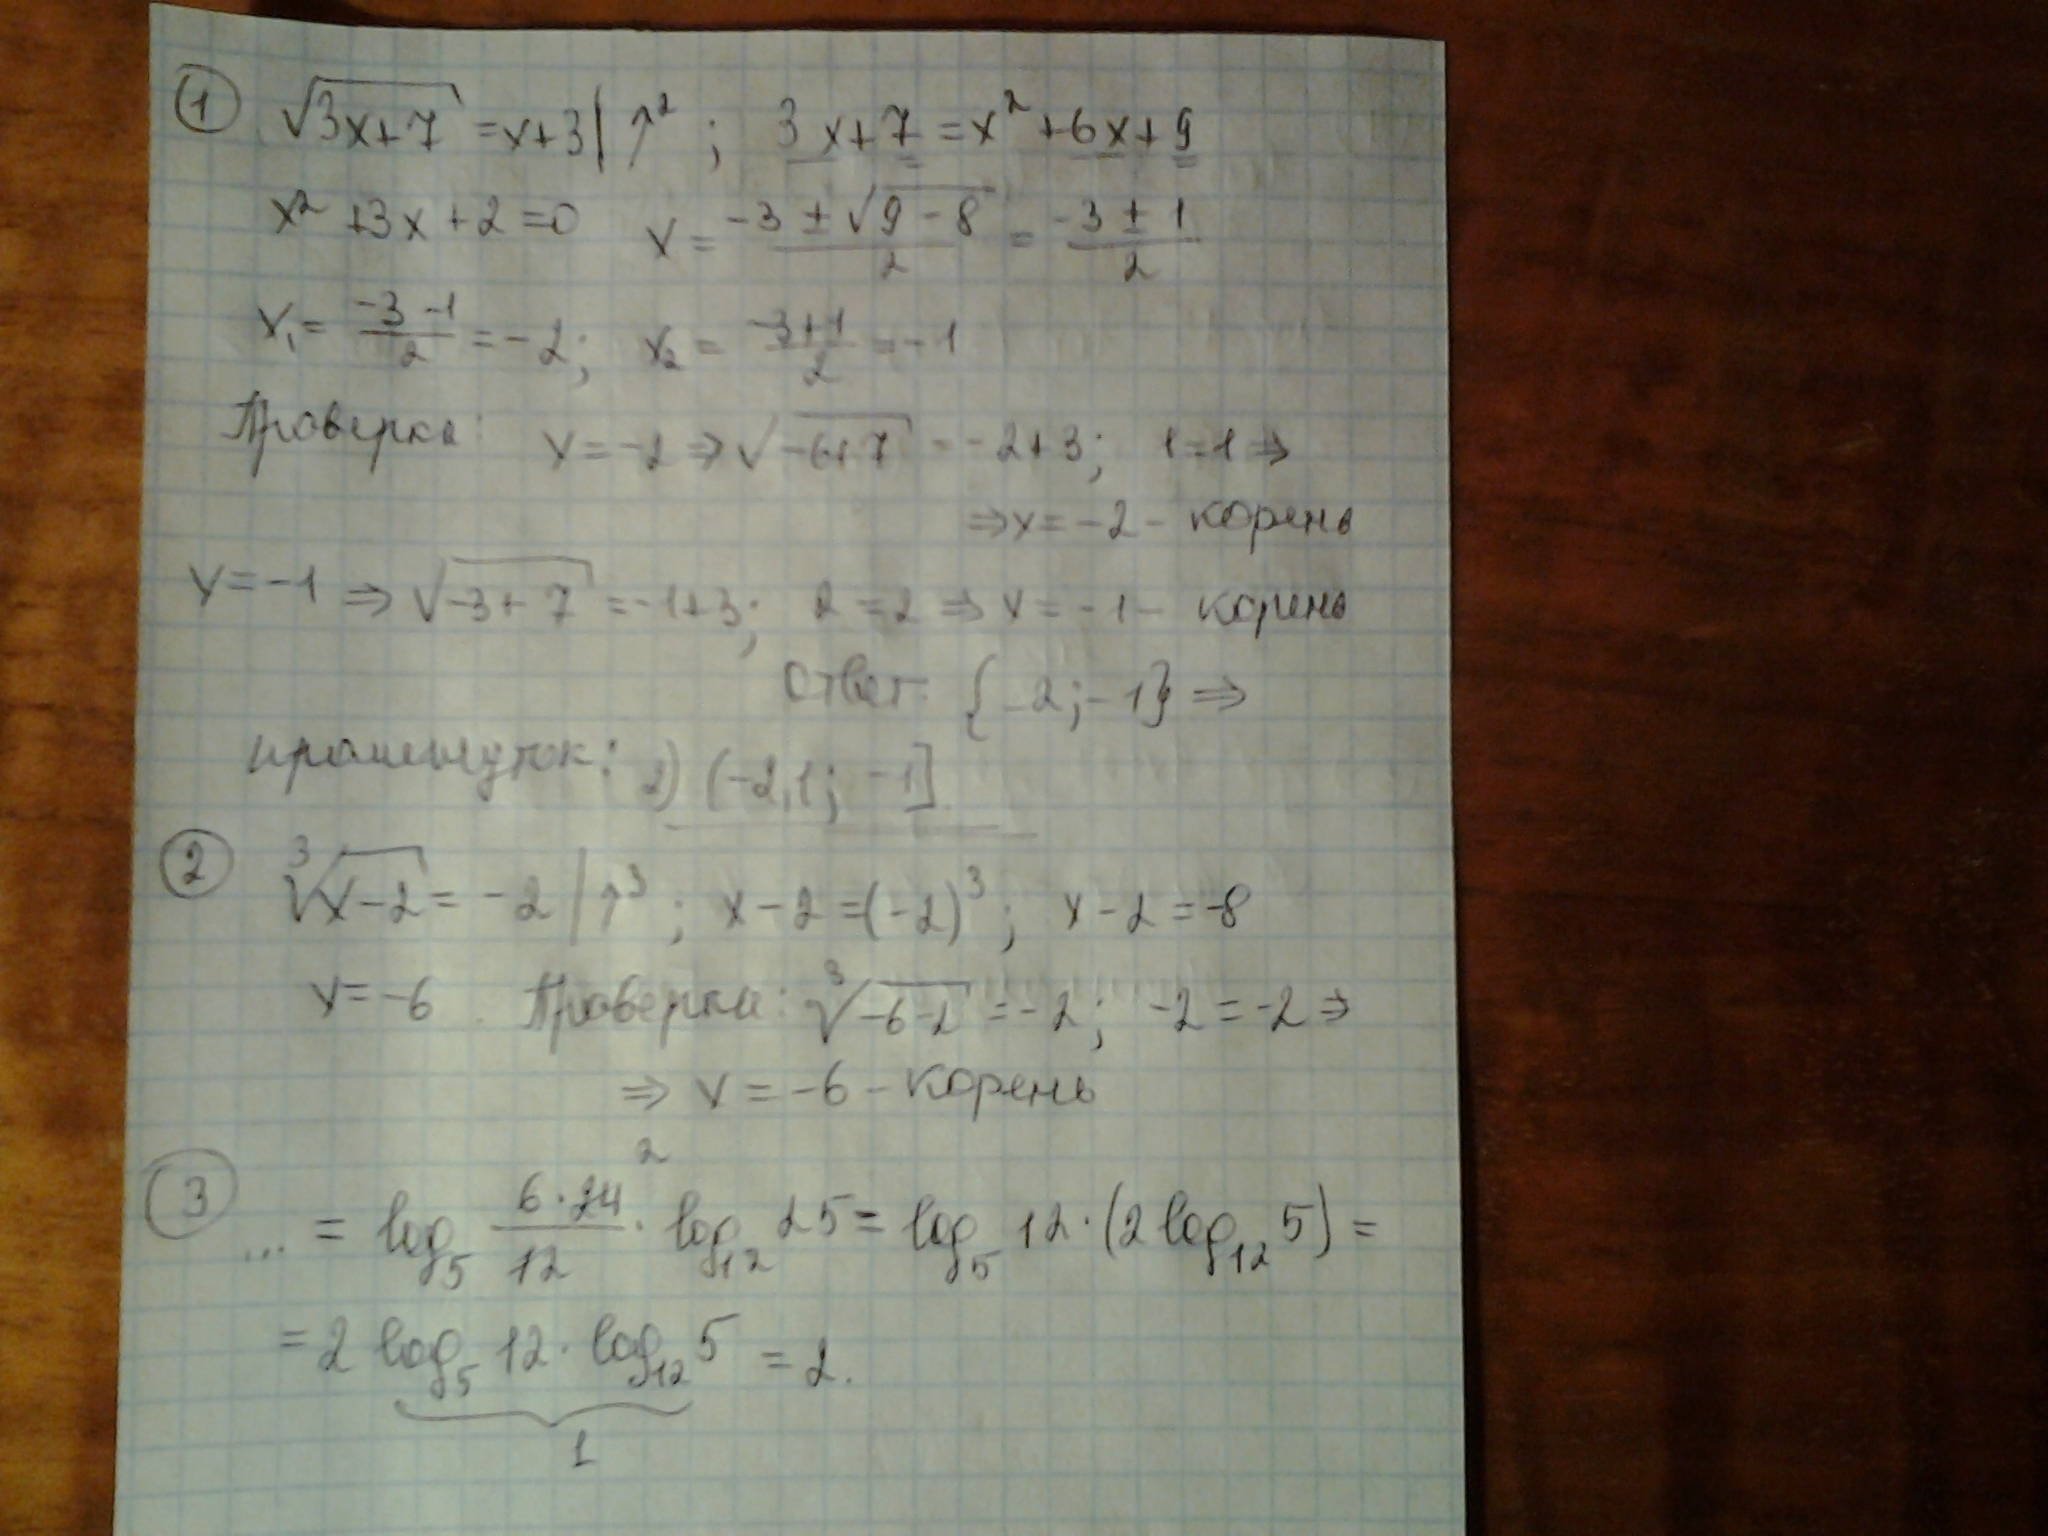 ① √(3x+7) = x+3 | ↑² ; 3x+7 = x² + 6x + 9
x² + 3x + 2 = 0   x = (-3 ± √(9-8))/2 = (-3 ± 1)/2
x₁ = (-3-1)/2 = -2; x₂ = (-3+1)/2 = -1
Проверка: x = -2 ⇒ √(-6+7) = -2+3; 1=1 ⇒
⇒ x = -2 - корень
x = -1 ⇒ √(-3+7) = -1+3; 2=2 ⇒ x = -1 - корень
Ответ: {-2; -1} ⇒
промежуток: 2) (-2,1; -1]
② ∛(x-2) = -2 | ↑³ ; x-2 = (-2)³ ; x-2 = -8
x = -6. Проверка: ∛(-6-2) = -2; -2 = -2 ⇒
⇒ x = -6 - корень
③ ... = log₅ (6·24²)/12 · log₁₂ 25 = log₅ 12 · (2 log₁₂ 5) =
= 2 log₅ 12 · log₁₂ 5 = 2.
1